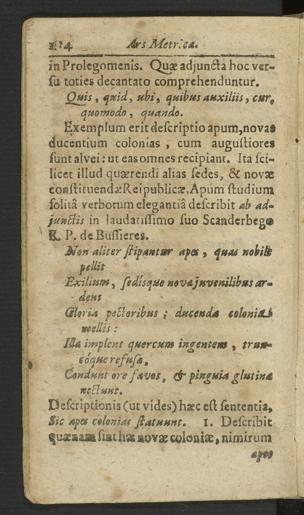 214 Ars Metrica.
in Prolegomenis. Quæ adjuncta hoc ver-
su toties decantato comprehenduntur.
Quis, quid, ubi, quibus auxiliis, cur,
quomodo, quando.
Exemplum erit descriptio apum, novas
ducentium colonias, cum augustiores
sunt alvei: ut eas omnes recipiant. Ita sci-
licet illud quærendi alias sedes, & novæ
constituendæ Reipublicæ, Apũm studium
solitâ verborum elegantiâ describit ab ad-
junctis in laudatissimo suo Scanderbego
R. P. de Bussieres.
Non aliter stipantur apes, quas nobile
pellit
Exilium, sedisque nova juvenilibus ar-
dent
Gloria pectoribus; ducenda coloniæ
mellis:
Illa implent quercum ingentem, trun-
cóque refuso,
Condunt ore favos, & pinguia glutina
nectunt.
Descriptionis (ut vides) hæc est sententia,
Sic apes colonias statuunt. 1. Describit
quænam sint hæ novæ coloniæ, nimirum
apes